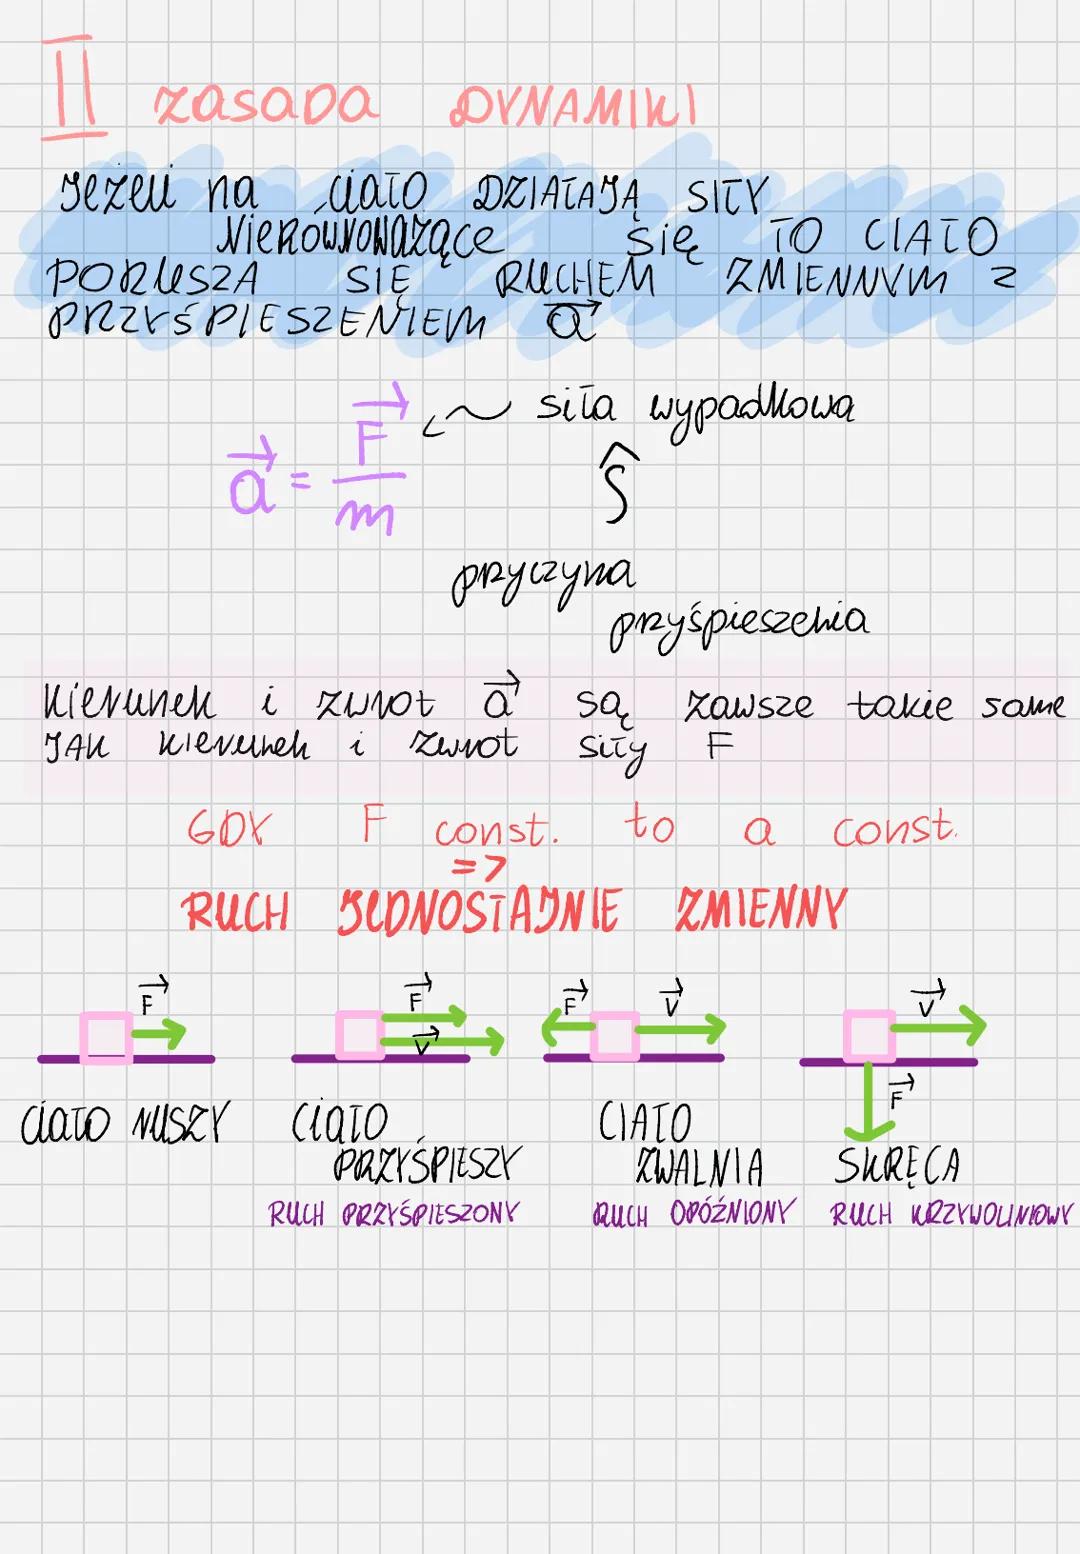 II zasada DYNAMIKI
Jeżeli na ciało DZIAŁAJĄ SIŁY
NIERÓWNOWAŻĄCE się TO CIAŁO
PORUSZA SIĘ RUCHEM ZMIENNYM z
PRZYŚPIESZENIEM a
siła wypadkowa
a = F
m
pryczyna
pryśpieszenia
kierunek i zwrot a są zawsze takie same
JAK kierunek i zwrot siły F
GDY F const. to a const.
=>
RUCH JEDNOSTAJNIE ZMIENNY
F F V F V V
F
ciało RUSZY ciało CIAŁO
PRZYŚPIESZY ZWALNIA SKRĘCA
RUCH PRZYŚPIESZONY RUCH OPÓŹNIONY RUCH KRZYWOLINIOWY